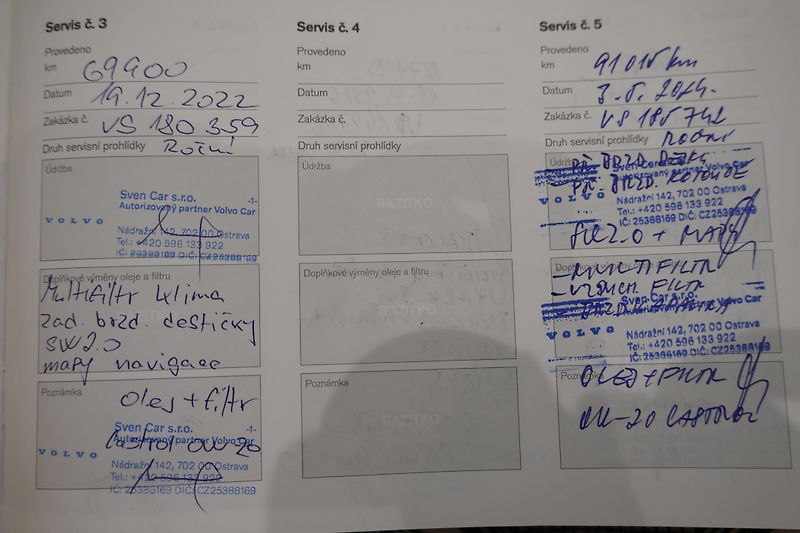 Servis č. 3
Provedeno
km 69900
Datum 19.12.2022
Zakázka č. VS 180 359
Druh servisní prohlídky Roční
Údržba
Sven Car s.r.o. -1-
Autorizovaný partner Volvo Car
VOLVO
Nádražní 142, 702 00 Ostrava
Tel.: +420 596 133 922
IČ: 25388169 DIČ: CZ25388169
Doplňkové výměny oleje a filtru
Multifiltr klima
zad. brzd. destičky
SW2.0
mapy navigace
Poznámka
Olej + filtr
Sven Car s.r.o. -1-
Autorizovaný partner Volvo Car
Castrol 0W20
VOLVO
Nádražní 142, 702 00 Ostrava
Tel.: +420 596 133 922
IČ: 25388169 DIČ: CZ25388169
Servis č. 4
Provedeno
km
Datum
Zakázka č.
Druh servisní prohlídky
Údržba
RAZÍTKO
Doplňkové výměny oleje a filtru
RAZÍTKO
Poznámka
RAZÍTKO
Servis č. 5
Provedeno
km 91015 km
Datum
Zakázka č. VS 185742
Druh servisní prohlídky Roční
Údržba
Př. BRZD. KOTOUČE
Sven Car s.r.o.
Autorizovaný partner Volvo Car
VOLVO
Nádražní 142, 702 00 Ostrava
Tel.: +420 596 133 922
IČ: 25388169 DIČ: CZ25388169
SW2.0 + MAPY
Doplňkové
- MULTIFILTR
- VZDUCH FILTR
Sven Car s.r.o.
Autorizovaný partner Volvo Car
VOLVO
Nádražní 142, 702 00 Ostrava
Tel.: +420 596 133 922
IČ: 25388169 DIČ: CZ25388169
Poznámka
OLEJ + FILTR
0W-20 CASTROL